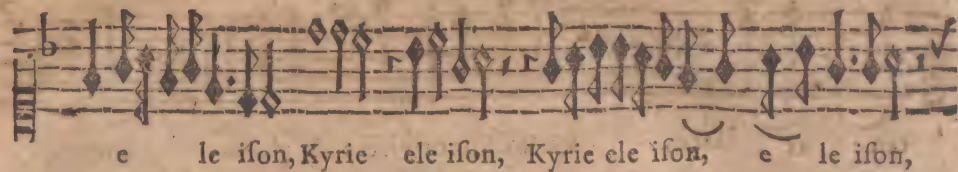 e le iſon, Kyrie ele iſon, Kyrie ele iſon, e le iſon,